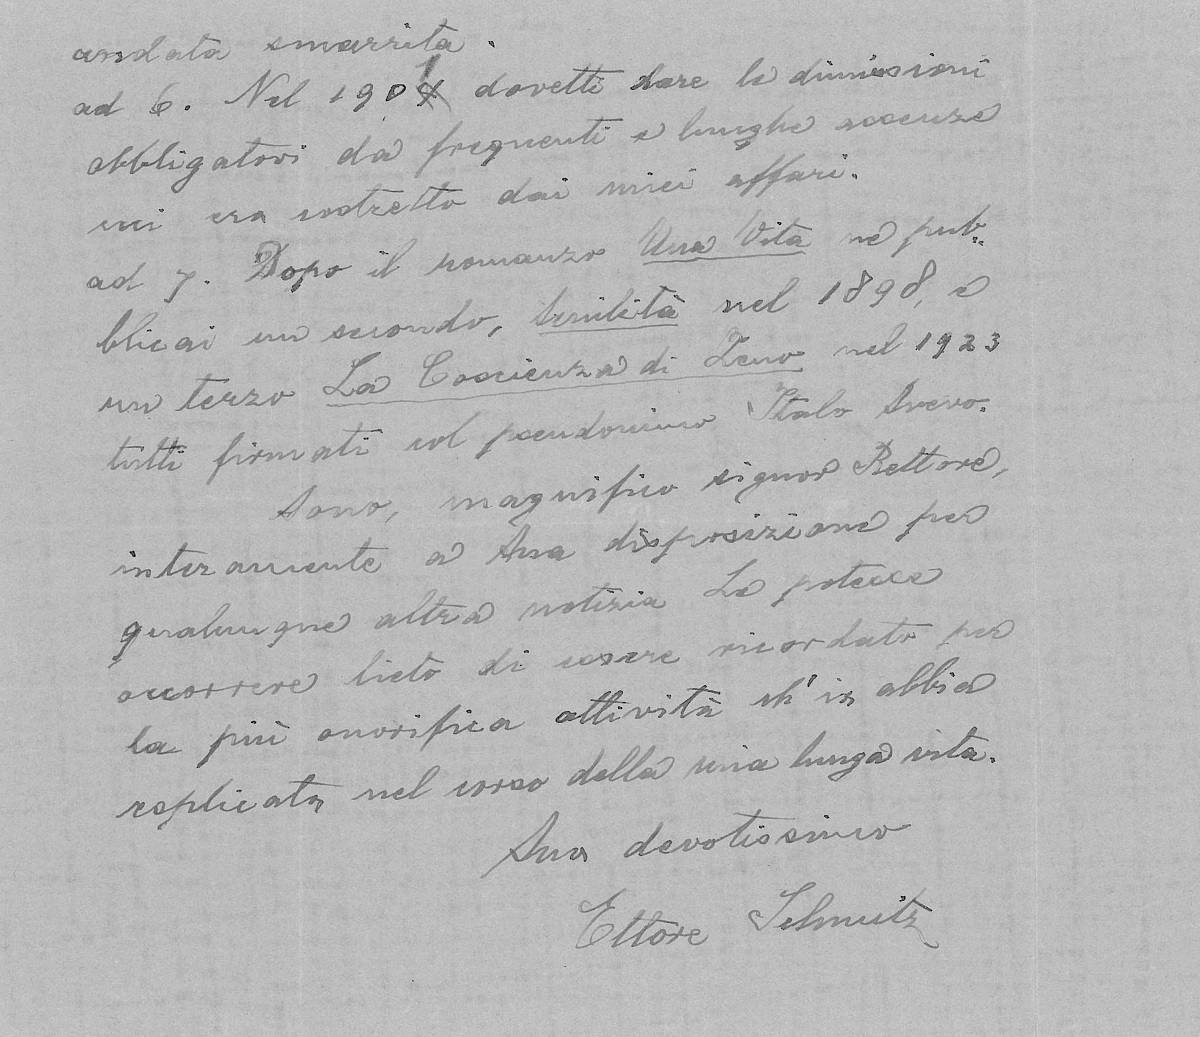 andata smarrita.
ad 6. Nel 1901 dovetti dare le dimissioni
obbligatovi da frequenti e lunghe assenze
cui era costretto dai miei affari.
ad 7. Dopo il romanzo Una Vita ne pub-
blicai un secondo, Senilità nel 1898, e
un terzo La Coscienza di Zeno nel 1923
tutti firmati col pseudonimo Italo Svevo.
Sono, magnifico signor Rettore,
interamente a Sua disposizione per
qualunque altra notizia Le potesse
occorrere lieto di essere ricordato per
la più onorifica attività ch'io abbia
esplicato nel corso della mia lunga vita.
Suo devotissimo
Ettore Schmitz